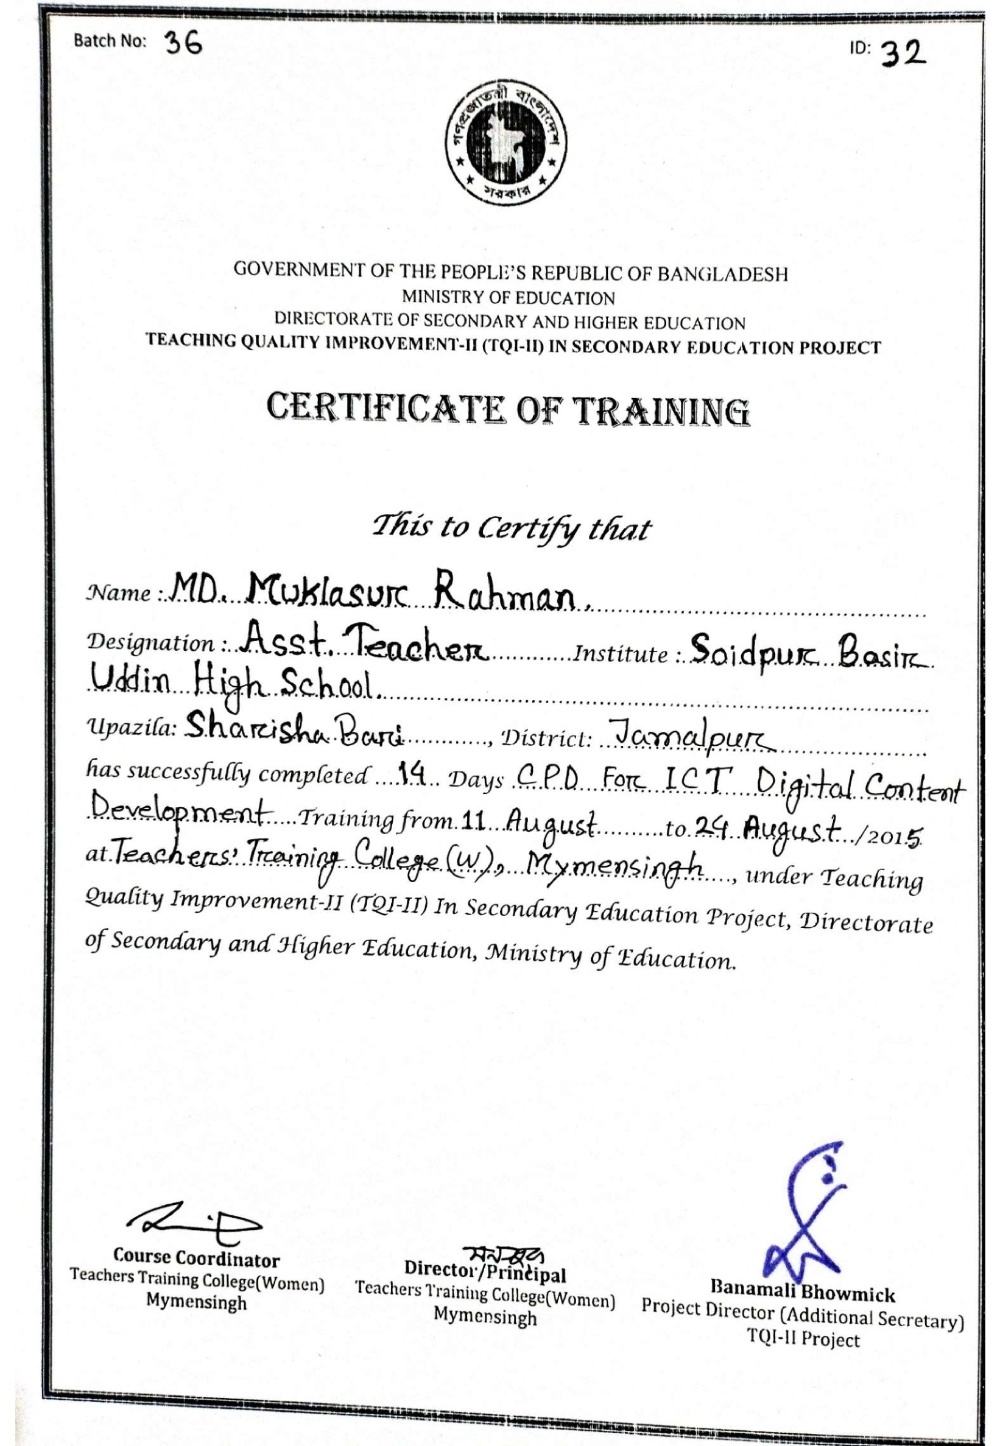 Batch No: 36
ID: 32
গণপ্রজাতন্ত্রী বাংলাদেশ
সরকার
GOVERNMENT OF THE PEOPLE'S REPUBLIC OF BANGLADESH
MINISTRY OF EDUCATION
DIRECTORATE OF SECONDARY AND HIGHER EDUCATION
TEACHING QUALITY IMPROVEMENT-II (TQI-II) IN SECONDARY EDUCATION PROJECT
CERTIFICATE OF TRAINING
This to Certify that
Name : MD. Muklasur Rahman.
Designation : Asst. Teacher Institute : Soidpur Basir
Uddin High School.
Upazila: Sharisha Bari, District: Jamalpur
has successfully completed 14 Days C.P.D For ICT Digital Content
Development Training from 11 August to 24 August /2015
at Teachers' Training College (W), Mymensingh, under Teaching
Quality Improvement-II (TQI-II) In Secondary Education Project, Directorate
of Secondary and Higher Education, Ministry of Education.
Course Coordinator
Teachers Training College(Women)
Mymensingh
Director/Principal
Teachers Training College(Women)
Mymensingh
Banamali Bhowmick
Project Director (Additional Secretary)
TQI-II Project